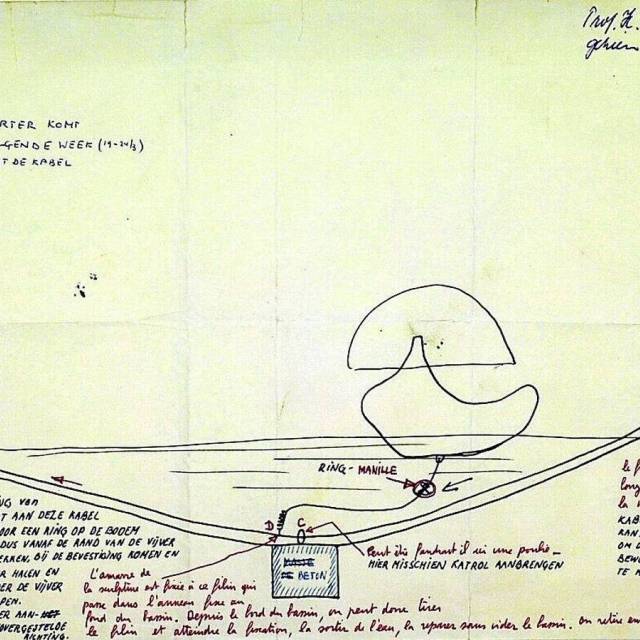 Prof. H.
RTER KOMT
GENDE WEEK (19-24/3)
T DE KABEL
RING - MANILLE
D
C
NG van
T AAN DEZE KABEL
OOR EEN RING OP DE BODEM
DUS VANAF DE RAND VAN DE VIJVER
EKKEN, BIJ DE BEVESTIGING KOMEN EN
R HALEN EN
ER DE VIJVER
PEN.
ER AAN-
OVERGESTELDE
RICHTING.
BETON
Peut être faudrait il ici une poulie
HIER MISSCHIEN KATROL AANBRENGEN
L'amarre de
la sculpture est fixée à ce filin qui
passe dans l'anneau fixé au
fond du bassin. Depuis le bord du bassin, on peut donc tirer
le filin et atteindre la fixation, la sortir de l'eau, la réparer sans vider le bassin. on retire en
le f
long
la
KAB
KAN
OM
BEV
TE